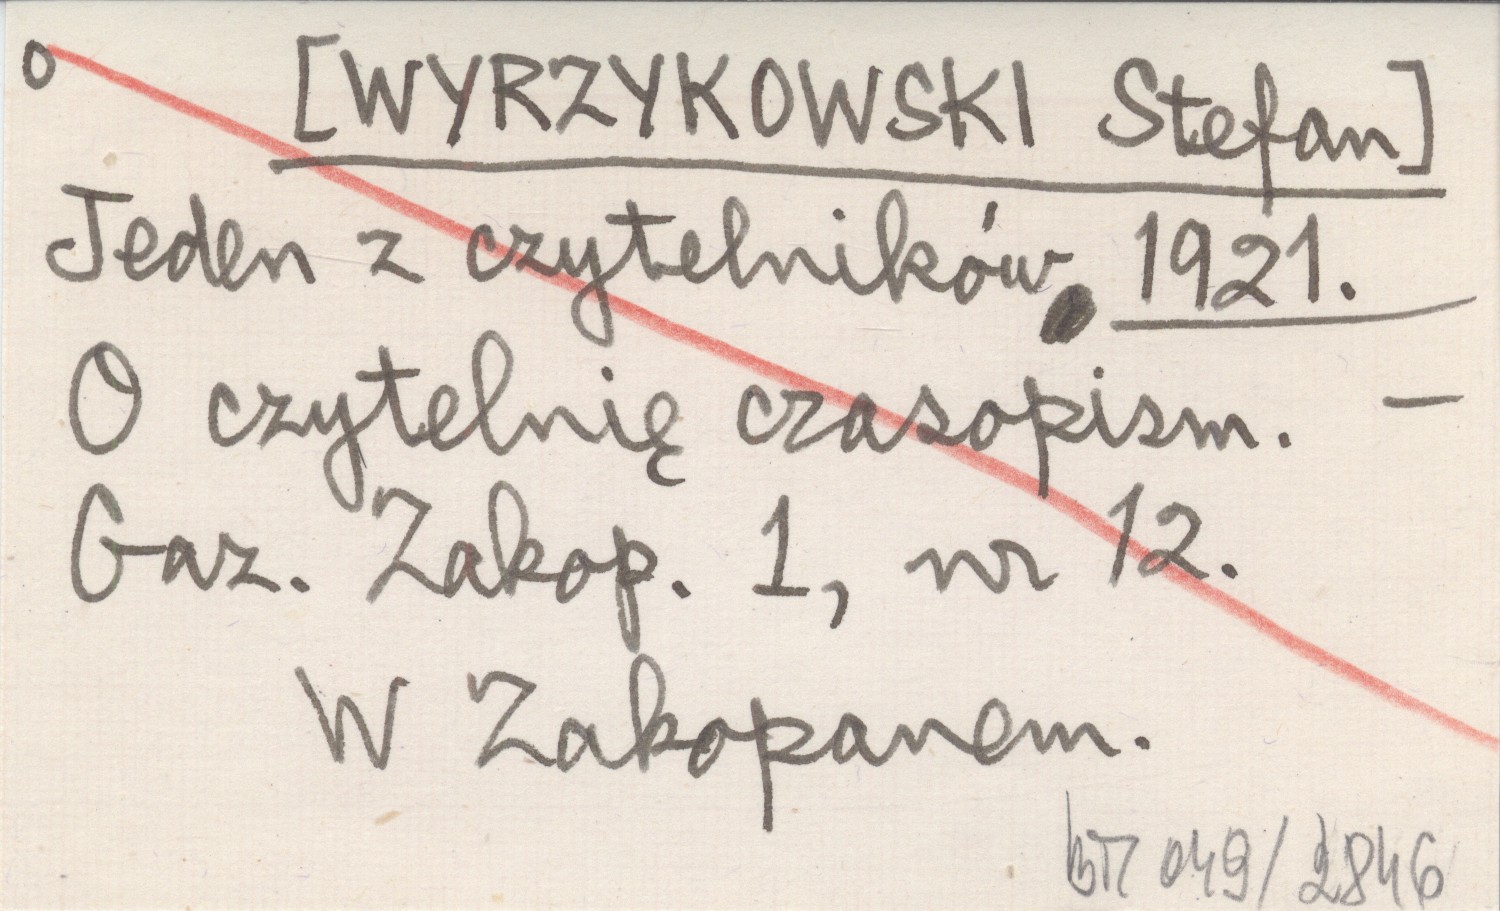 o [WYRZYKOWSKI Stefan]
Jeden z czytelników 1921.
O czytelnię czasopism. —
Gaz. Zakop. 1, nr 12.
W Zakopanem.
049/2846